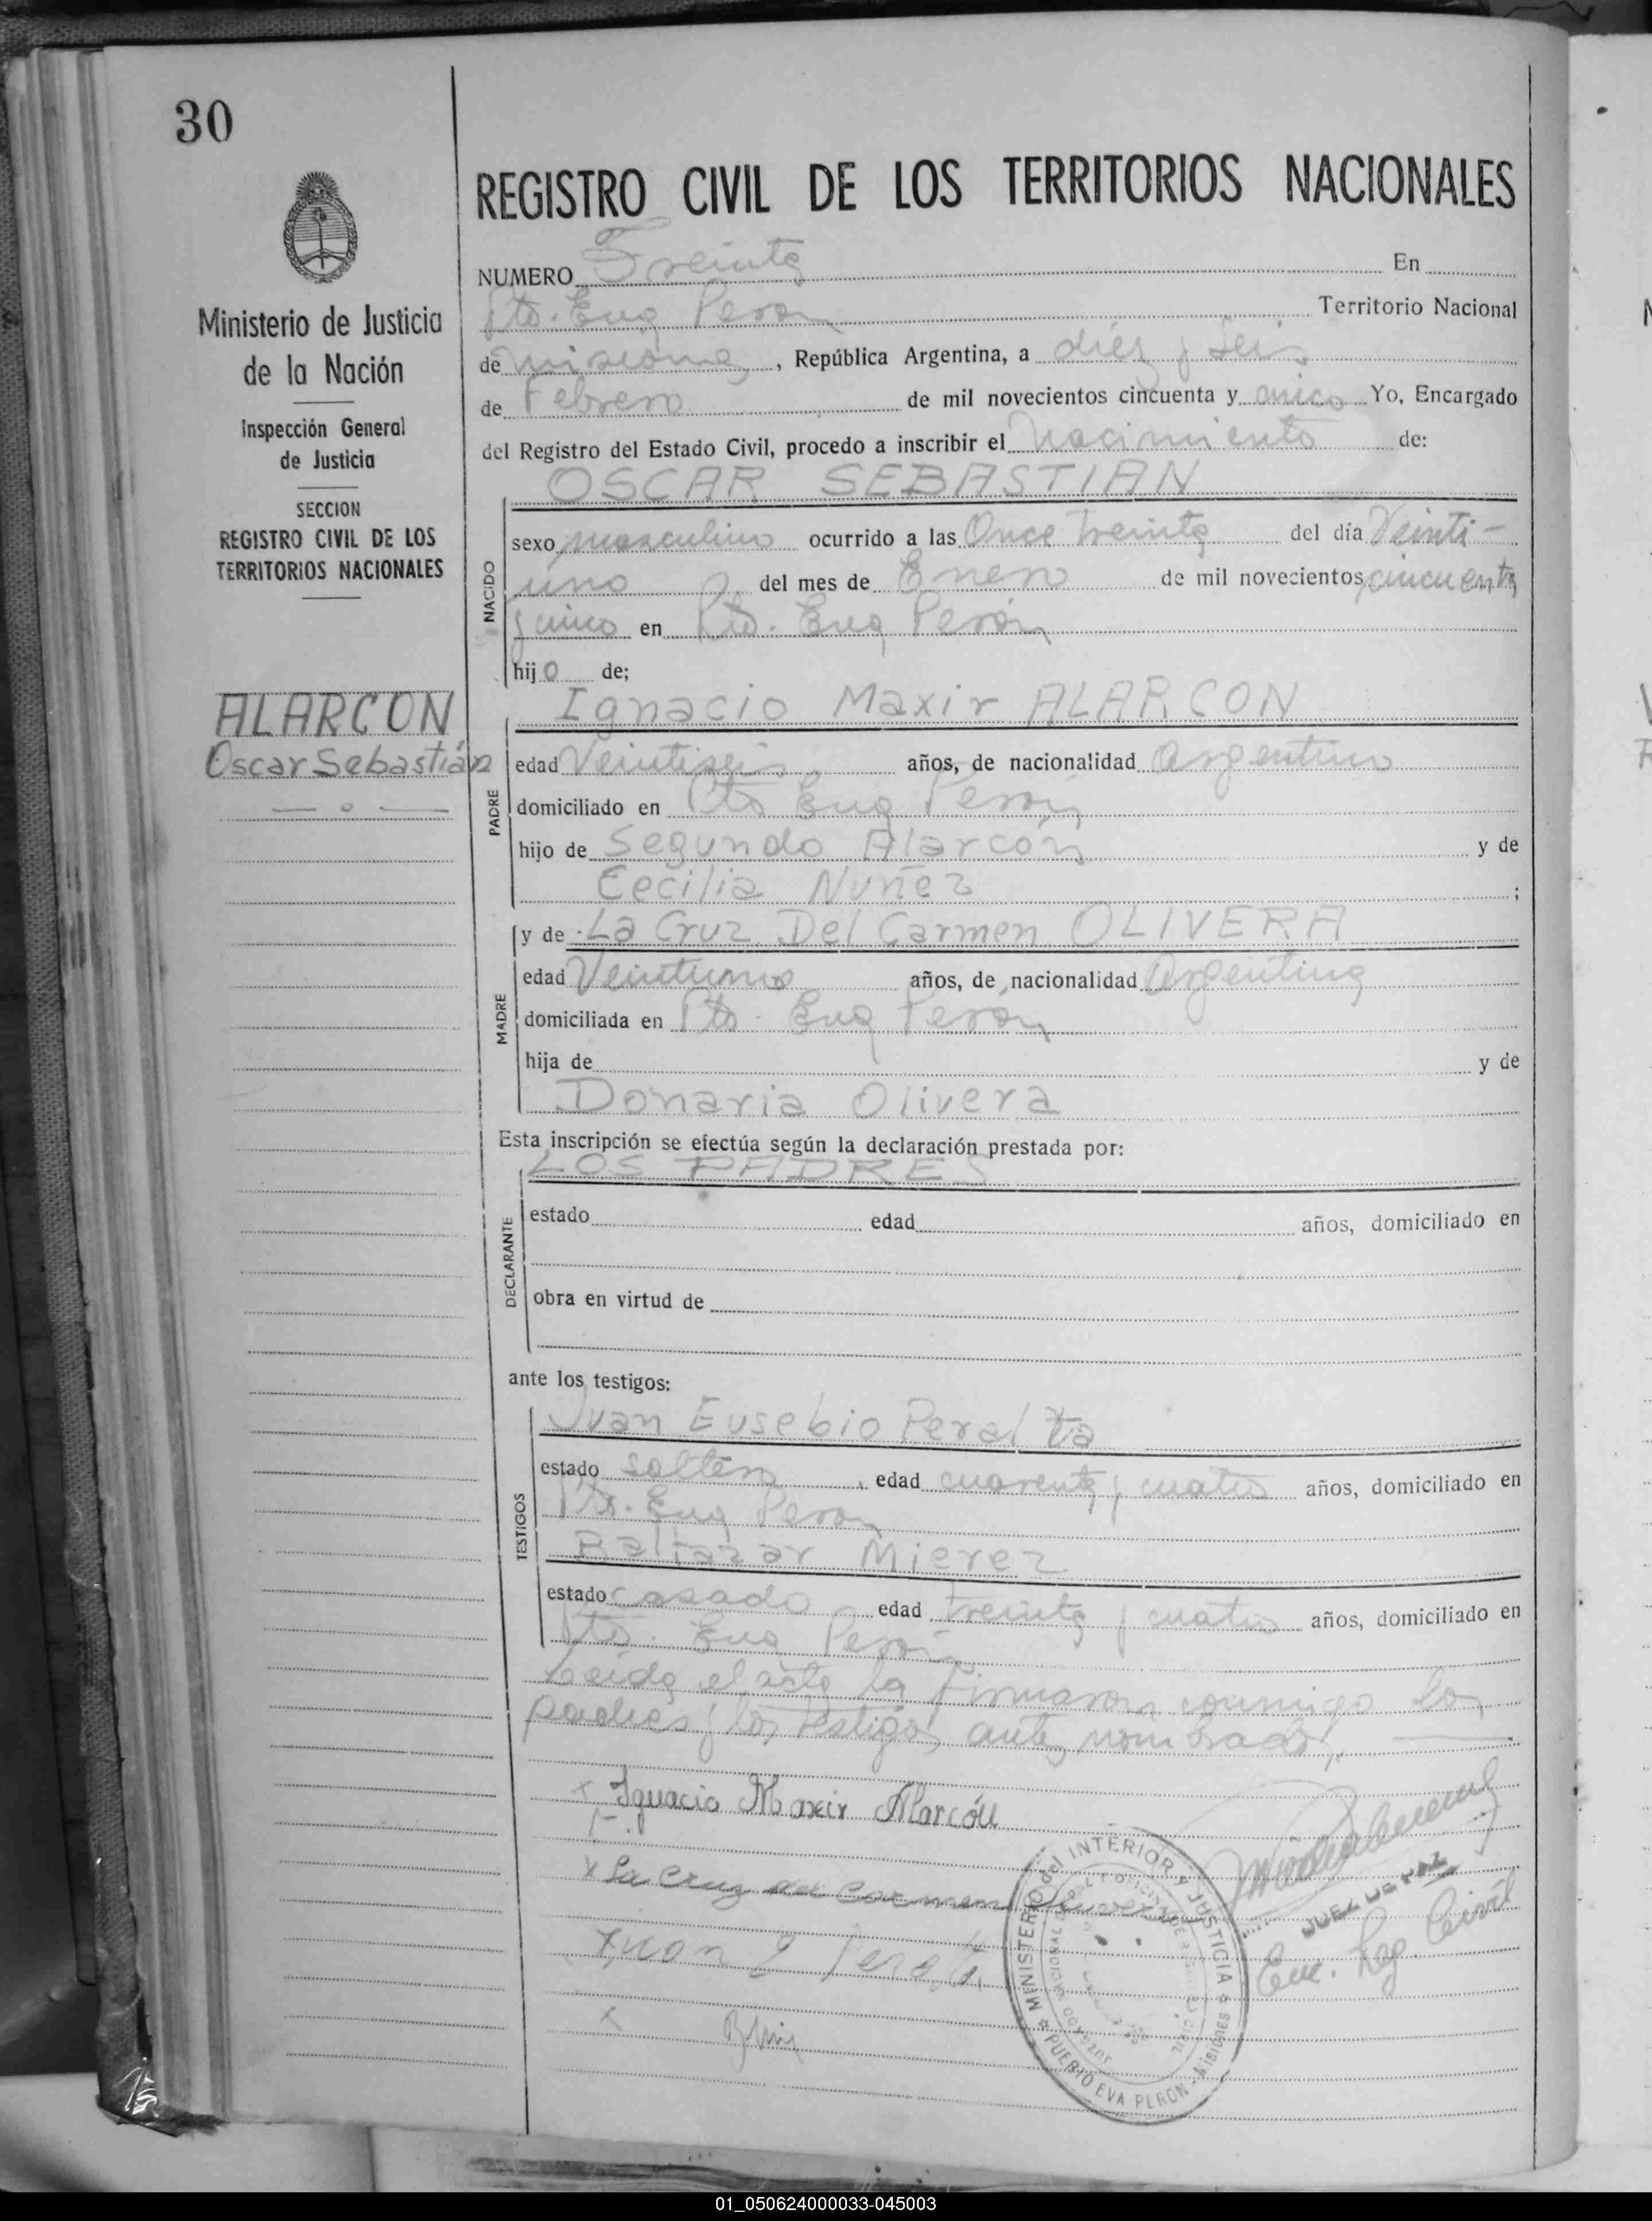 30
Ministerio de Justicia
de la Nación
Inspección General
de Justicia
SECCION
REGISTRO CIVIL DE LOS
TERRITORIOS NACIONALES
ALARCON
Oscar Sebastián
REGISTRO CIVIL DE LOS TERRITORIOS NACIONALES
NUMERO Treinta En
Pto. Eva Perón Territorio Nacional
de Misiones, República Argentina, a diez y seis
de Febrero de mil novecientos cincuenta y cinco Yo, Encargado
del Registro del Estado Civil, procedo a inscribir el Nacimiento de:
OSCAR SEBASTIAN
NACIDO
sexo masculino ocurrido a las Once treinta del día Veinti-
uno del mes de Enero de mil novecientos cincuenta
y cinco en Pto. Eva Perón
hijo de;
Ignacio Maxir ALARCON
PADRE
edad Veintiseis años, de nacionalidad Argentino
domiciliado en Pto Eva Perón
hijo de Segundo Alarcón y de
Cecilia Nuñez ;
y de La Cruz Del Carmen OLIVERA
MADRE
edad Veintiuno años, de nacionalidad Argentina
domiciliada en Pto. Eva Perón
hija de y de
Donaria Olivera
Esta inscripción se efectúa según la declaración prestada por:
LOS PADRES
DECLARANTE
estado edad años, domiciliado en
obra en virtud de
ante los testigos:
Juan Eusebio Peralta
TESTIGOS
estado soltero, edad cuarenta y cuatro años, domiciliado en
Pto. Eva Perón
Baltazar Mierez
estado casado edad treinta y cuatro años, domiciliado en
Pto. Eva Perón
Leida el acta la firmaron conmigo los
padres y los testigos ante nombrados.
x Ignacio Maxir Alarcón
x La Cruz del Carmen Olivera
x Juan E Peralta
x
JUEZ DE PAZ
Enc. Reg. Civil
MINISTERIO del INTERIOR Y JUSTICIA
PUERTO EVA PERON - Misiones
01_050624000033-045003